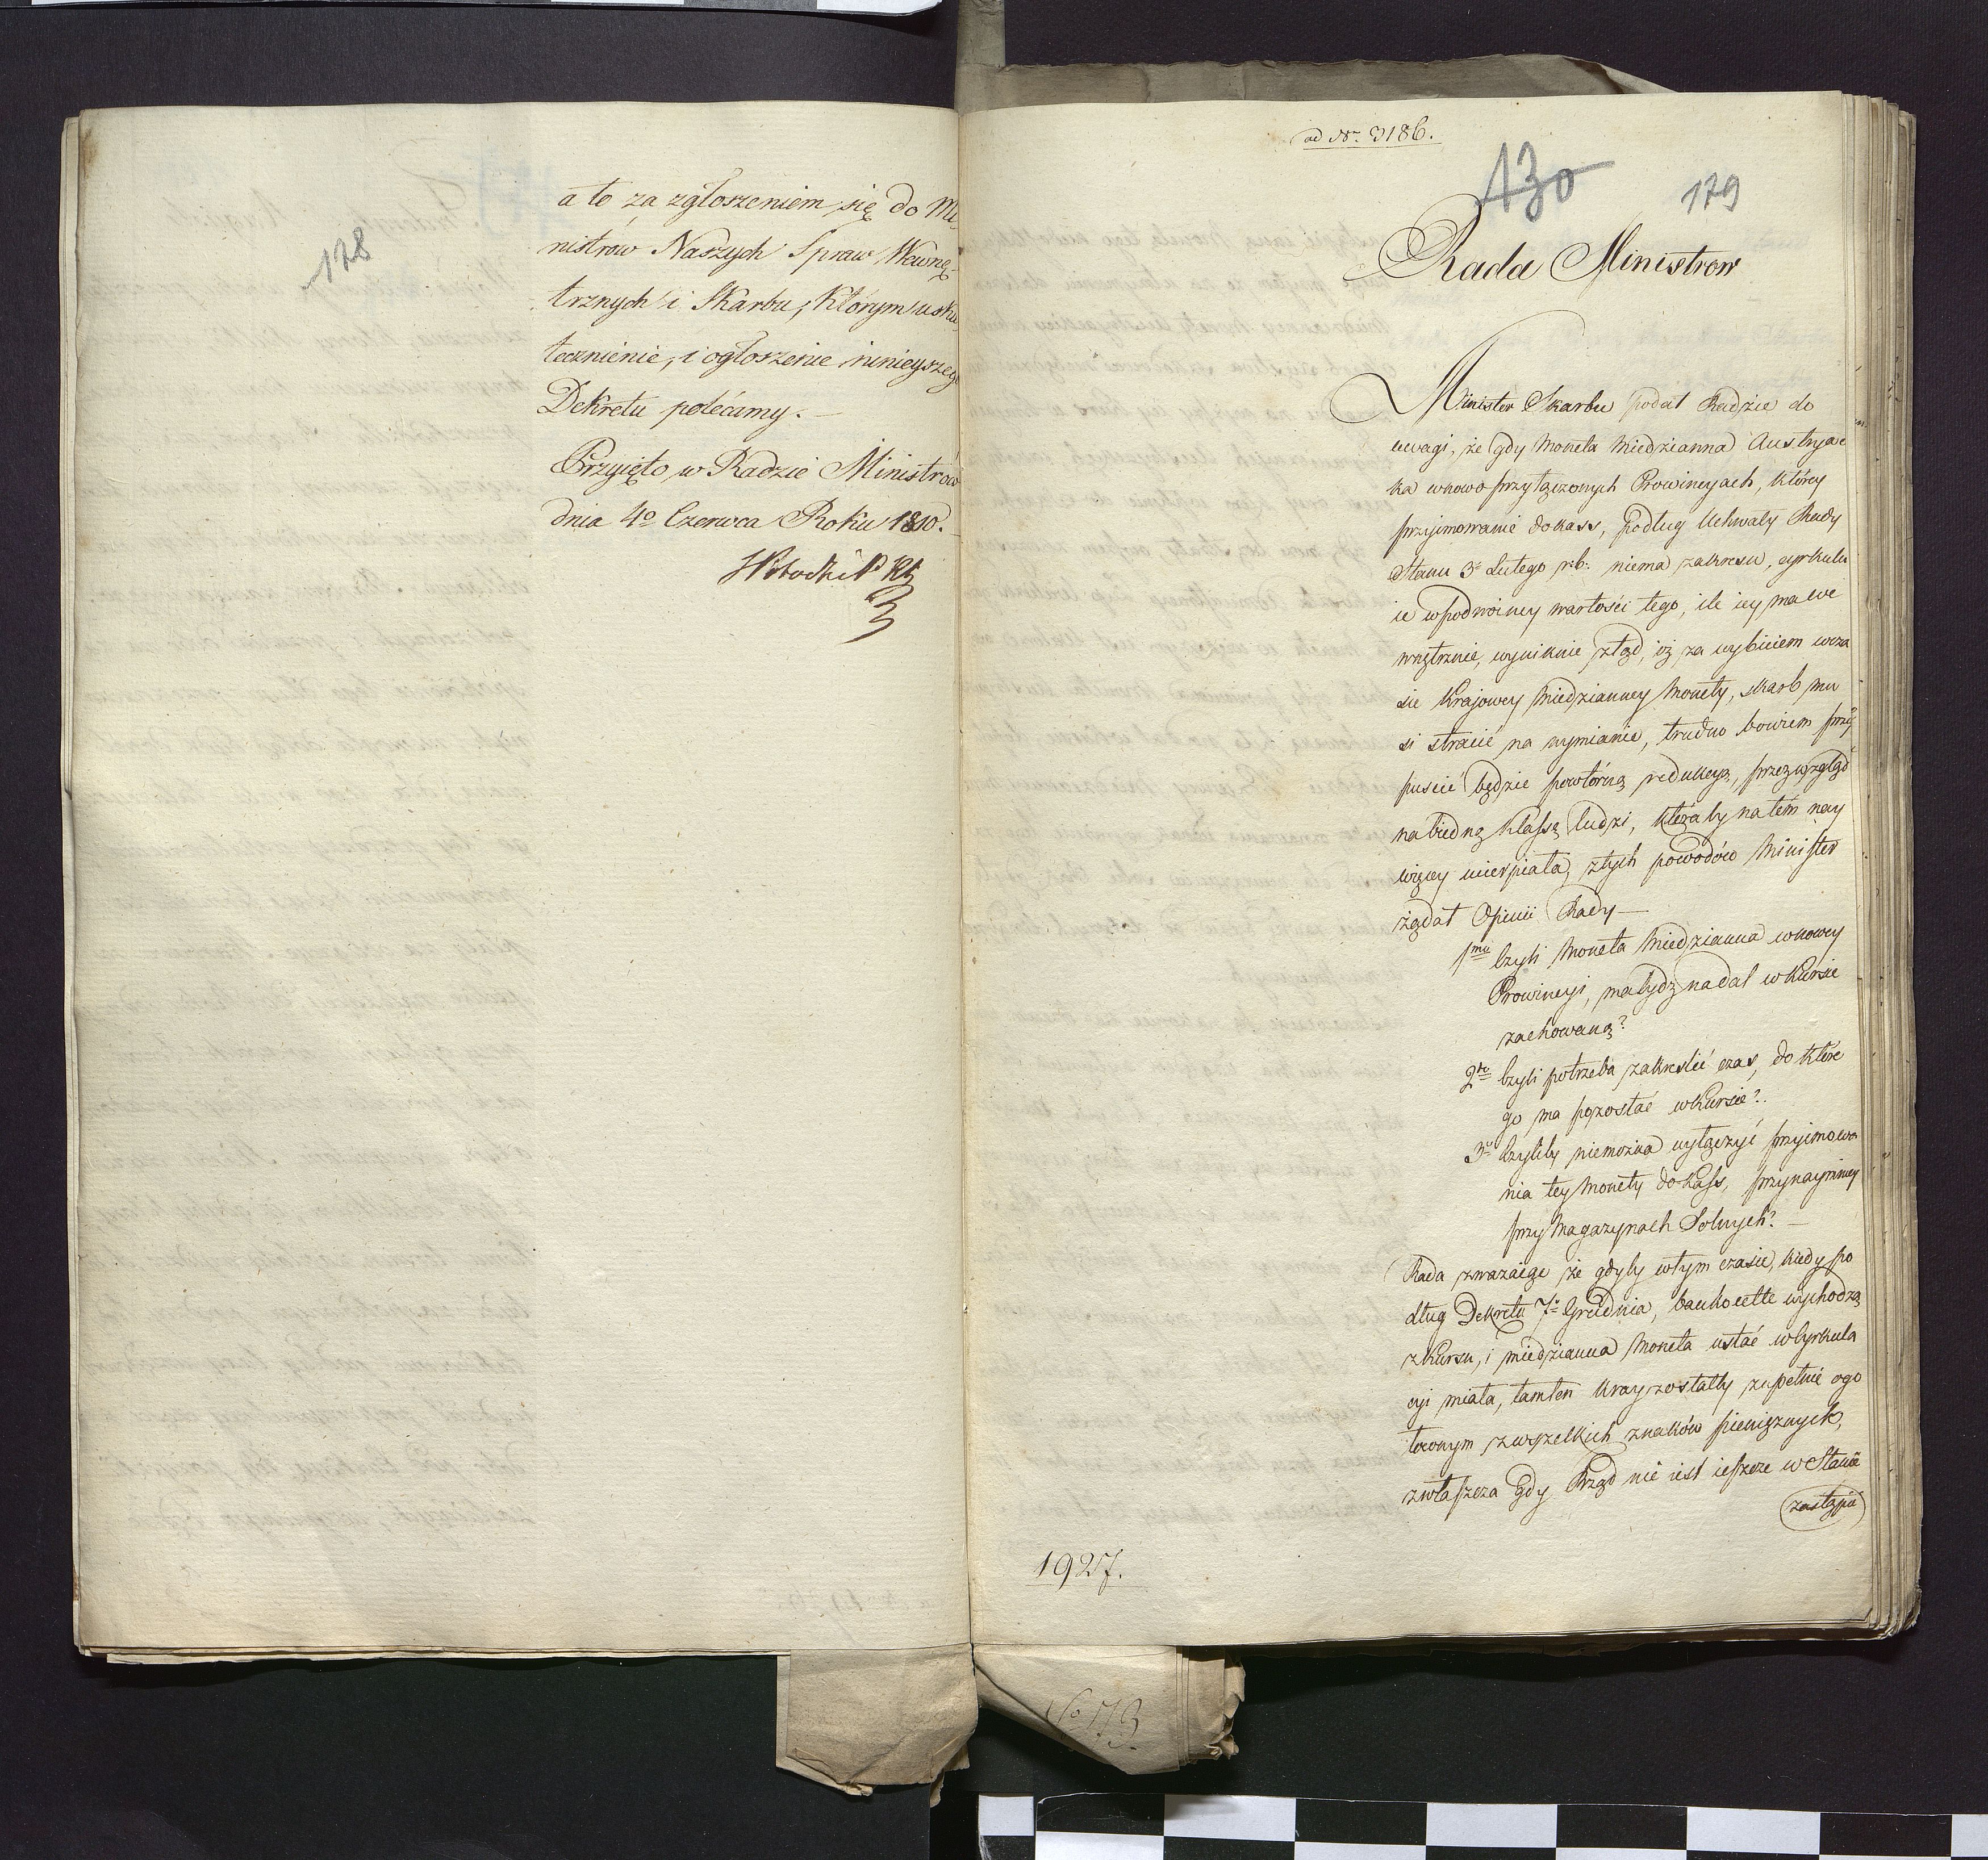 178
a to za zgłoszeniem się do Mi
nistrów Naszych Spraw Wewnę-
trznych i Skarbu, którym usku
tecznienie, i ogłoszenie ninieyszego
Dekretu polécamy. —
Przyięto w Radzie Ministrów
dnia 4º Czerwca Roku 1810.
ad Nr. 3186.
130
179
Rada Ministrow
Minister Skarbu podał Radzie do
uwagi, że gdy Moneta Miedzianna Austryac
ka wnowo przyłączonych Prowincyach, którey
przyimowanie do kass, podług Uchwały Rady
Stanu 3º Lutego r:b: niema zakresu, cyrkulu
ie wpodwóiney wartości tego, ile iey ma we
wnętrznie, wyniknie ztąd, iż za wybiciem wcza
sie Krajowey Miedzianney Monety, skarb mu
si stracić na wymianie, trudno bowiem przy
puscić będzie powtórną redukcyą, przez wzgląd
na biedną klassę ludzi, któraby na tém nay
więcey ucierpiała, z tych powodów Minister
żądał Opinii Rady —
1mo Czyli Moneta Miedzianna wnowey
Prowincyi, ma bydź nadal w Kursie
zachowaną?
2do Czyli potrzeba zakreslić czas, do które
go ma pozostać w Kursie?
3o Czyliby niemożna wyłączyć przyimowa
nia tey Monety do Kass, przynaymniey
przy Magazynach Solnych? —
Rada zważaiąc że gdyby wtym czasie, kiedy po
dług Dekretu 7º Grudnia, bankocetle wychodzą
z Kursu, i miedzianna Moneta ustać w Cyrkula
cyi miała, tamten kray zostałby zupełnie ogo
łoconym z wszelkich znaków pieniężnych,
zwłaszcza gdy Rząd nie iest ieszcze w Stanie
zastąpić
1927.